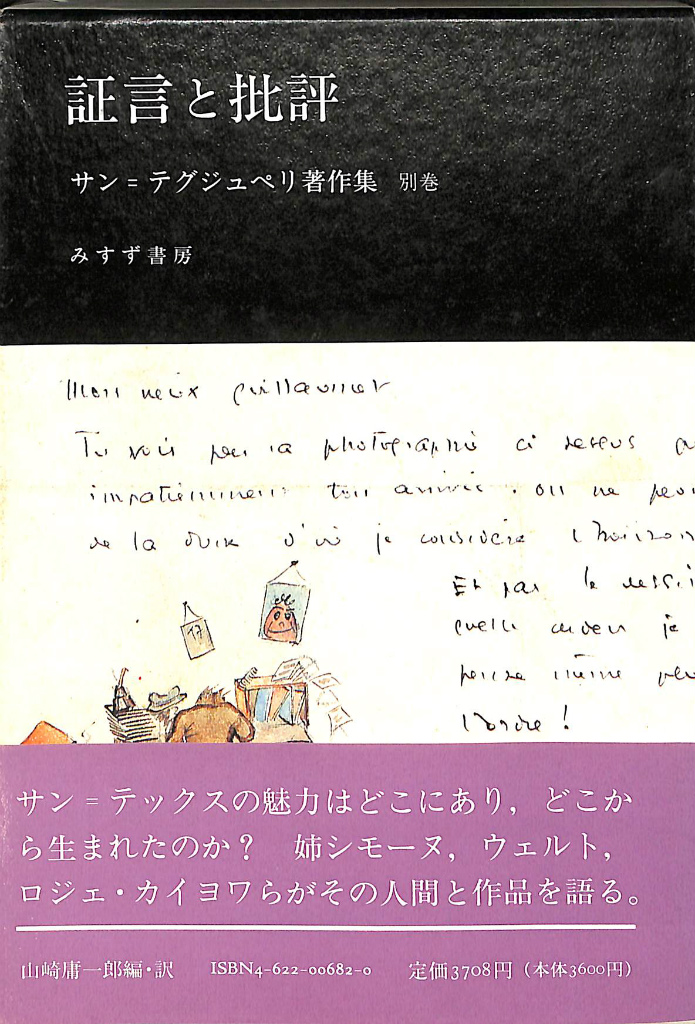 証言と批評
サン＝テグジュペリ著作集 別巻
みすず書房
Mon vieux Guillaumet
Tu vois par la photographie ci dessus
impatiemment ton arrivée. on ne
de la dune d'où je considère l'horizon
Et par le dessin
je
pense même
l'ordre!
17
サン＝テックスの魅力はどこにあり，どこか
ら生まれたのか？ 姉シモーヌ，ウェルト，
ロジェ・カイヨワらがその人間と作品を語る。
山崎庸一郎編・訳 ISBN4-622-00682-0 定価3708円（本体3600円）